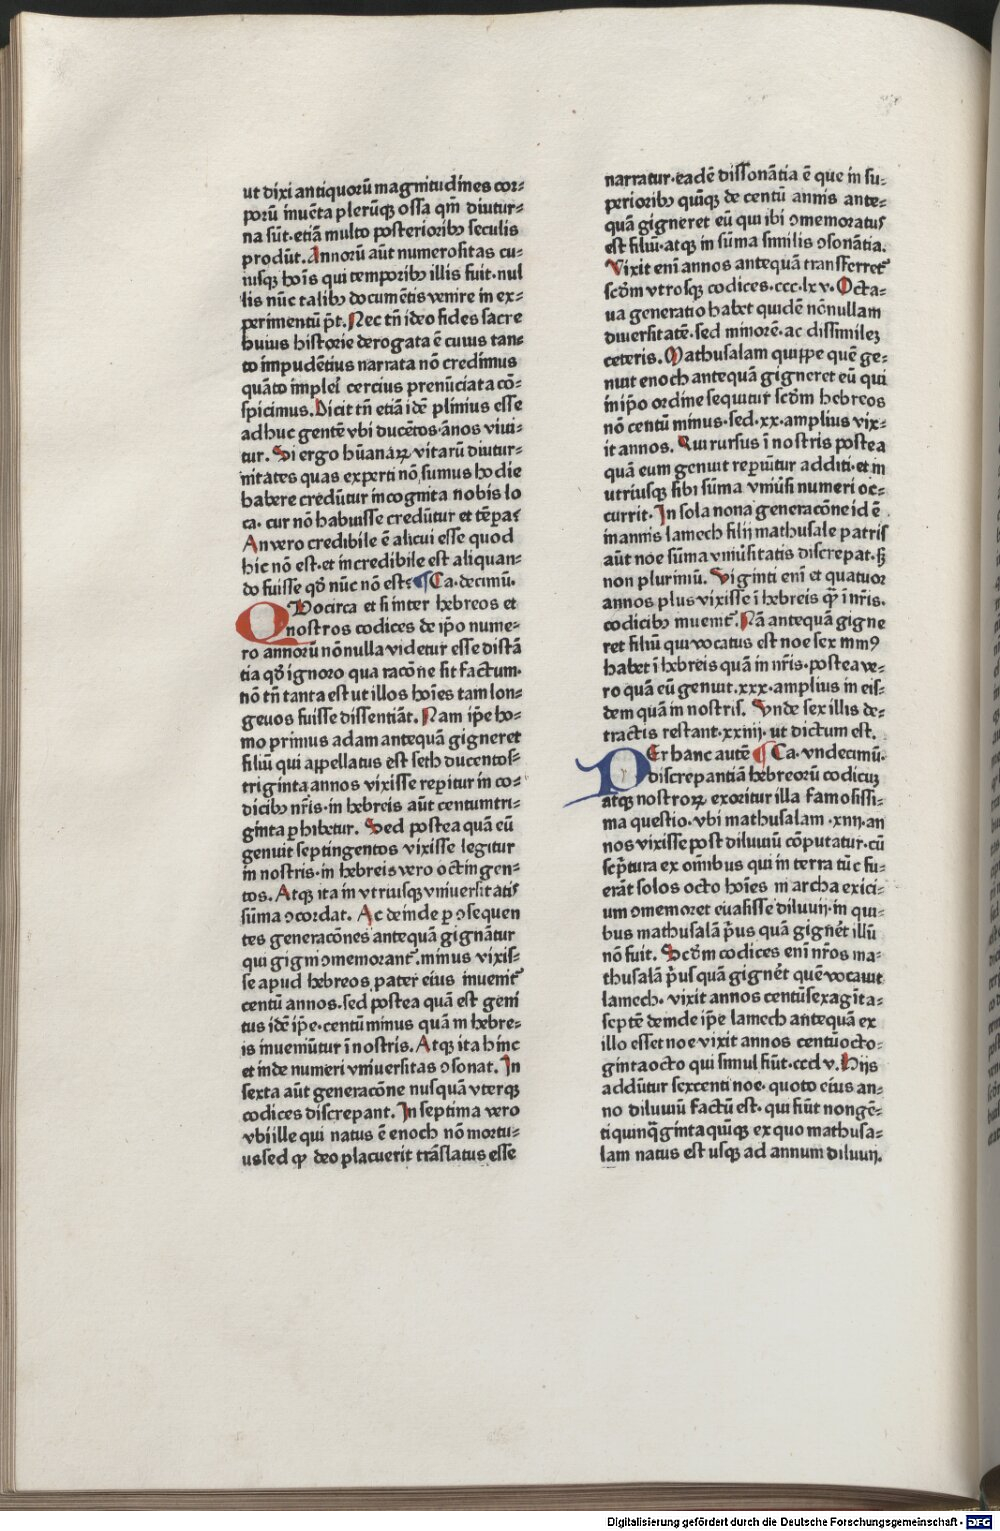 ut dixi antiquorū magnitudines cor⸗
porū inuēta plerūqꝫ ossa qm̄ diutur⸗
na sūt·etiā multo posteriorib9 seculis
prodūt. Annorū aūt numerositas cu⸗
iusqꝫ hoīs qui temporib9 illis fuit·nul
lis nūc talib9 documētis venire in ex⸗
perimentū pt̄. Nec tn̄ ideo fides sacre
huius historie derogata ē cuius tan⸗
to impudētius narrata nō credimus
quāto impleri cercius prenūciata cō⸗
spicimus. Dicit tn̄ etiā idē plinius esse
adhuc gentē vbi ducētos·ānos viui⸗
tur. Si ergo hūanaꝝ vitarū diutur⸗
nitates quas experti nō sumus hodie
habere credūtur incognita nobis lo
ca· cur nō habuisse credūtur et tēpa?
An vero credibile ē alicui esse quod
hic nō est·et incredibile est aliquan⸗
do fuisse qd̄ nūc nō est? ¶ Ca. decimū.
QVocirca et si inter hebreos et
nostros codices de ip̄o nume⸗
ro annorū nōnulla videtur esse distā
tia qd̄ ignoro qua racōne sit factum·
nō tn̄ tanta est ut illos hoīes tam lon⸗
geuos fuisse dissentiāt. Nam ip̄e ho⸗
mo primus adam antequā gigneret
filiū qui appellatus est seth ducentos⸗
triginta annos vixisse repitur in co⸗
dicib9 nr̄is·in hebreis aūt centumtri⸗
ginta ꝑhibetur. Sed postea quā eū
genuit septingentos vixisse legitur
in nostris·in hebreis vero octingen⸗
tos. Atqꝫ ita in vtriusqꝫ vniuersitatis
sūma ɔcordat. Ac deinde ꝑ ɔsequen
tes generacōnes antequā gignātur
qui gigni ɔmemorant᷑·minus vixis⸗
se apud hebreos pater eius inuenit᷑
centū annos·sed postea quā est geni
tus idē ip̄e·centū minus quā in hebre⸗
is inueniūtur ī nostris. Atqꝫ ita hinc
et inde numeri vniuersitas ɔsonat. In
sexta aūt generacōne nusquā vterqꝫ
codices discrepant. In septima vero
vbi ille qui natus ē enoch nō mortu⸗
us sed ꝙ deo placuerit trāslatus esse
narratur·eadē dissonātia ē que in su⸗
periorib9 quīqꝫ de centū annis ante⸗
quā gigneret eū qui ibi ɔmemoratus
est filiū·atqꝫ in sūma similis ɔsonātia.
Vixit enī annos antequā transferret᷑
scd̄m vtrosqꝫ codices·ccc·lxv. Octa⸗
ua generatio habet quidē nōnullam
diuersitatē·sed minorē·ac dissimileꝫ
ceteris. Mathusalam quippe quē ge⸗
nuit enoch antequā gigneret eū qui
in ip̄o ordine sequitur scd̄m hebreos
nō centū minus·sed·xx·amplius vix⸗
it annos. Qui rursus ī nostris postea
quā eum genuit repiūtur additi·et in
utriusqꝫ sibi sūma vniūsi numeri oc⸗
currit. In sola nona generacōne id ē
in annis lamech filij mathusale patris
aūt noe sūma vniūsitatis discrepat·sꝫ
non plurimū. Viginti enī et quatuor
annos plus vixisse ī hebreis qꝫ ī nr̄is.
codicib9 inuenit᷑. Nā antequā gigne
ret filiū qui vocatus est noe sex min9
habet ī hebreis quā in nr̄is·postea ve⸗
ro quā eū genuit·xxx·amplius in eis⸗
dem quā in nostris. Vnde sex illis de⸗
tractis restant·xxiiij· ut dictum est.
PEr hanc autē ¶ Ca. vndecimū.
discrepantiā hebreorū codicuꝫ
atqꝫ nostroꝝ exoritur illa famosissi⸗
ma questio·vbi mathusalam ·xiiij·an
nos vixisse post diluuiū cōputatur·cū
scp̄tura ex om̄ibus qui in terra tūc fu⸗
erāt solos octo hoīes in archa exici⸗
um ɔmemoret euasisse diluuij·in qui⸗
bus mathusalā pͥus quā gignēt illū
nō fuit. Scd̄m codices enī nr̄os ma⸗
thusalā pͥus quā gignēt quē vocauit
lamech· vixit annos centūsexagīta⸗
septē deinde ip̄e lamech antequā ex
illo esset noe vixit annos centūocto⸗
gintaocto qui simul fiūt·cccl v. Hijs
addūtur sexcenti noe· quoto eius an⸗
no diluuiū factū est· qui fiūt nongē⸗
tiquinq̄ginta quīqꝫ ex quo mathusa⸗
lam natus est usqꝫ ad annum diluuij.
Digitalisierung gefördert durch die Deutsche Forschungsgemeinschaft - DFG